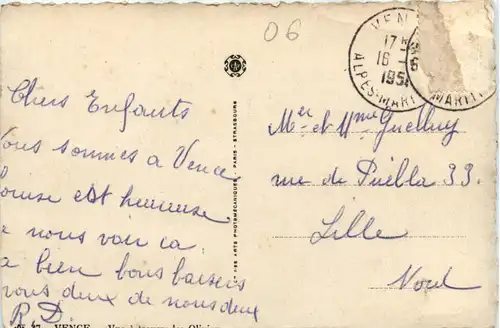 06
VEN
17
16
195
ALPES-MARITI
MARITI
Chers Enfants
ous sommes a Vence
ouise est heureuse
e nous voir ça.
a bien bons baisers
vous deux de nous deux
R D.
Mer et Mme Guelluy
rue de Puebla 33.
Lille
Nord
ARTS PHOTOMÉCANIQUES - PARIS - STRASBOURG
27 VENCE